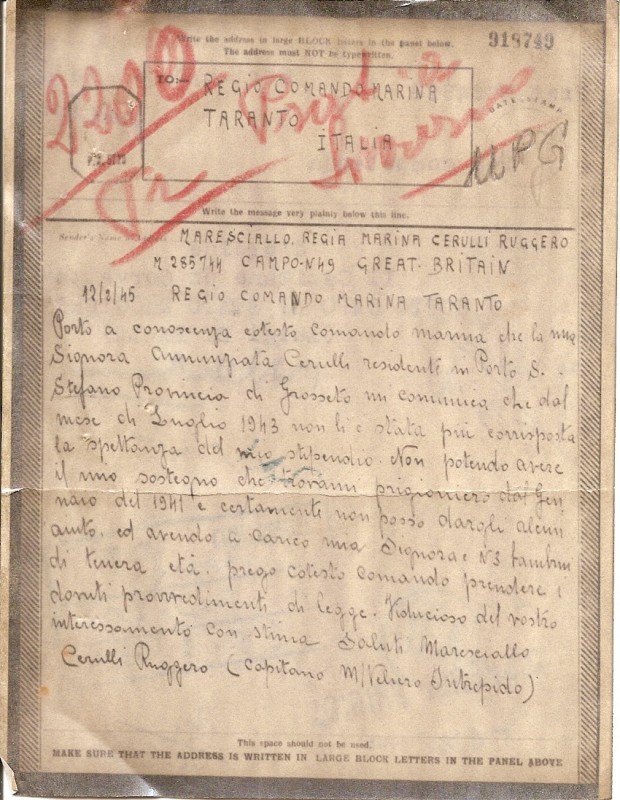 Write the address in large BLOCK letters in the panel below.
The address must NOT be typewritten.
918749
TO:—
REGIO COMANDO MARINA
TARANTO
ITALIA
DATE STAMP
2200
MPG
Write the message very plainly below this line.
Sender's Name
MARESCIALLO. REGIA MARINA CERULLI RUGGERO
M 285744 CAMPO-N49 GREAT-BRITAIN
12/2/45 REGIO COMANDO MARINA TARANTO
Porto a conoscenza cotesto Comando marina che la mia
Signora Annunziata Cerulli residente in Porto S.
Stefano Provincia di Grosseto mi comunica che dal
mese di Luglio 1943 non li è stata più corrisposta
la spettanza del mio stipendio. Non potendo avere
il mio sostegno che trovami prigioniero dal Gen
naio del 1941 e certamente non posso dargli alcun
aiuto. ed avendo a carico mia Signora e N3 bambini
di tenera età. prego cotesto comando prendere i
dovuti provvedimenti di legge. Fiducioso del vostro
interessamento con stima Saluti Maresciallo
Cerulli Ruggero (Capitano M/Veliero Intrepido)
This space should not be used.
MAKE SURE THAT THE ADDRESS IS WRITTEN IN LARGE BLOCK LETTERS IN THE PANEL ABOVE